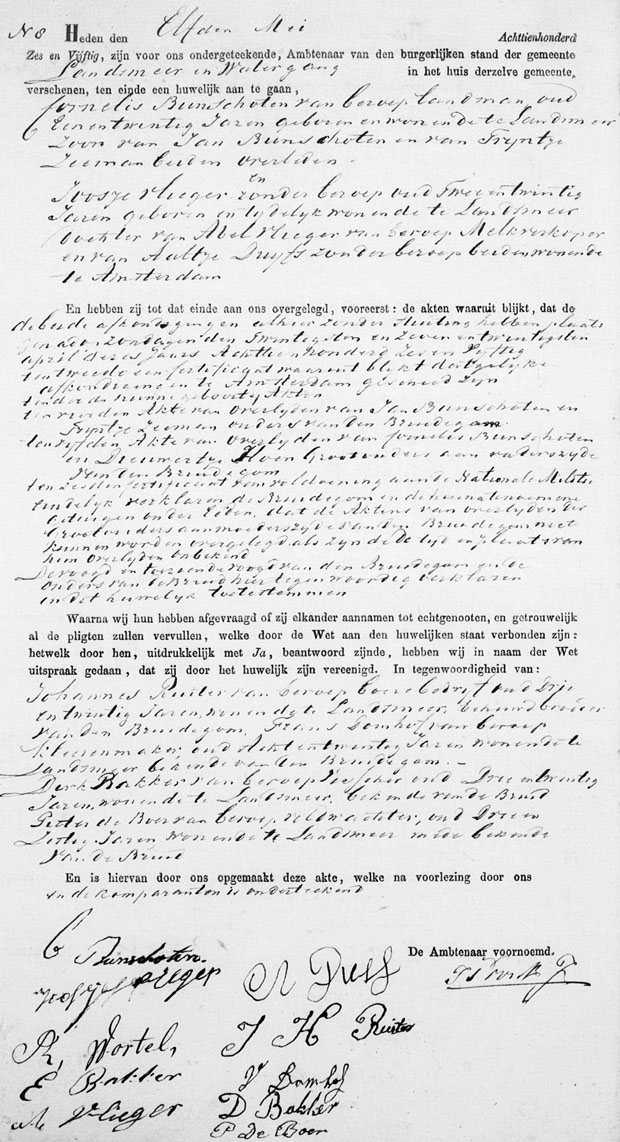 N 8 Heden den Elfden Mei Achttienhonderd
Zes en Vijftig, zijn voor ons ondergeteekende, Ambtenaar van den burgerlijken stand der gemeente
Landsmeer en Watergang in het huis derzelve gemeente,
verschenen, ten einde een huwelijk aan te gaan,
Cornelis Bunschoten van beroep landman oud
Eenentwintig Jaren geboren en wonende te Landsmeer
Zoon van Jan Bunschoten en van Tryntje
Zeeman beiden overleden.
En
Joosje Vlieger zonder beroep oud Tweeentwintig
Jaren geboren en tydelyk wonende te Landsmeer
Dochter van Abel Vlieger van beroep Melkverkoper
en van Aaltje Duyfs zonder beroep beiden wonende
te Amsterdam
En hebben zij tot dat einde aan ons overgelegd, vooreerst: de akten waaruit blijkt, dat de
de beide afkondigingen alhier zonder stuiting hebben plaats
gehad op Zondagen den Twintigsten en Zeven entwintigsten
april dezes Jaars Achttienhonderd Zes en Vyftig
ten tweede een Certificaat waaruit blykt dat gelyke
afkondigingen te Amsterdam geschied zyn
ten derde hunne geboorte Akten
ten vierden Akte van Overlyden van Jan Bunschoten en
Tryntje Zeeman ouders van den Bruidegom
ten vyfden Akte van Overlyden van Cornelis Bunschoten
en Dieuwertje Hoen Grootouders aan vaderszyde
van den Bruidegom
ten zesden Certificaat van voldoening aan de Nationale Militie
Eindelyk verklaren de Bruidegom en de hierna tenoemene
getuigen onder Eeden, dat de Aktens van overlyden der
Grootouders aan moederszyde van den Bruidegom niet
kunnen worden overgelegd als zynde de tyd en plaats van
hun Overlyden onbekend
De voogd en toeziende voogd van den Bruidegom en de
Ouders van de Bruid hier tegenwoordig verklaren
in dit huwelyk toetestemmen
Waarna wij hun hebben afgevraagd of zij elkander aannamen tot echtgenooten, en getrouwelijk
al de pligten zullen vervullen, welke door de Wet aan den huwelijken staat verbonden zijn:
hetwelk door hen, uitdrukkelijk met Ja, beantwoord zijnde, hebben wij in naam der Wet
uitspraak gedaan, dat zij door het huwelijk zijn vereenigd. In tegenwoordigheid van:
Johannes Ruiter van beroep boerebedryf oud Drie
entwintig Jaren, wonende te Landsmeer, behuwdbroeder
van den Bruidegom. Frans Domhof van beroep
kleerenmaker, oud Acht entwentig Jaren wonende te
Landsmeer bekende van den Bruidegom. -
Derk Bakker van beroep Visscher oud Drie entwentig
Jaren, wonende te Landsmeer, bekende van de Bruid
Pieter de Boer van beroep veldwachter, oud Drie en
Zestig Jaren wonende te Landsmeer mede bekende
van de Bruid
En is hiervan door ons opgemaakt deze akte, welke na voorlezing door ons
en de komparanten is onderteekend
De Ambtenaar voornoemd.
C Bunschoten.
Vlieger
A Duyf
R, Wortel,
J H Ruiter
E Bakker
F Domhof
Vlieger
D Bakker
P De Boer